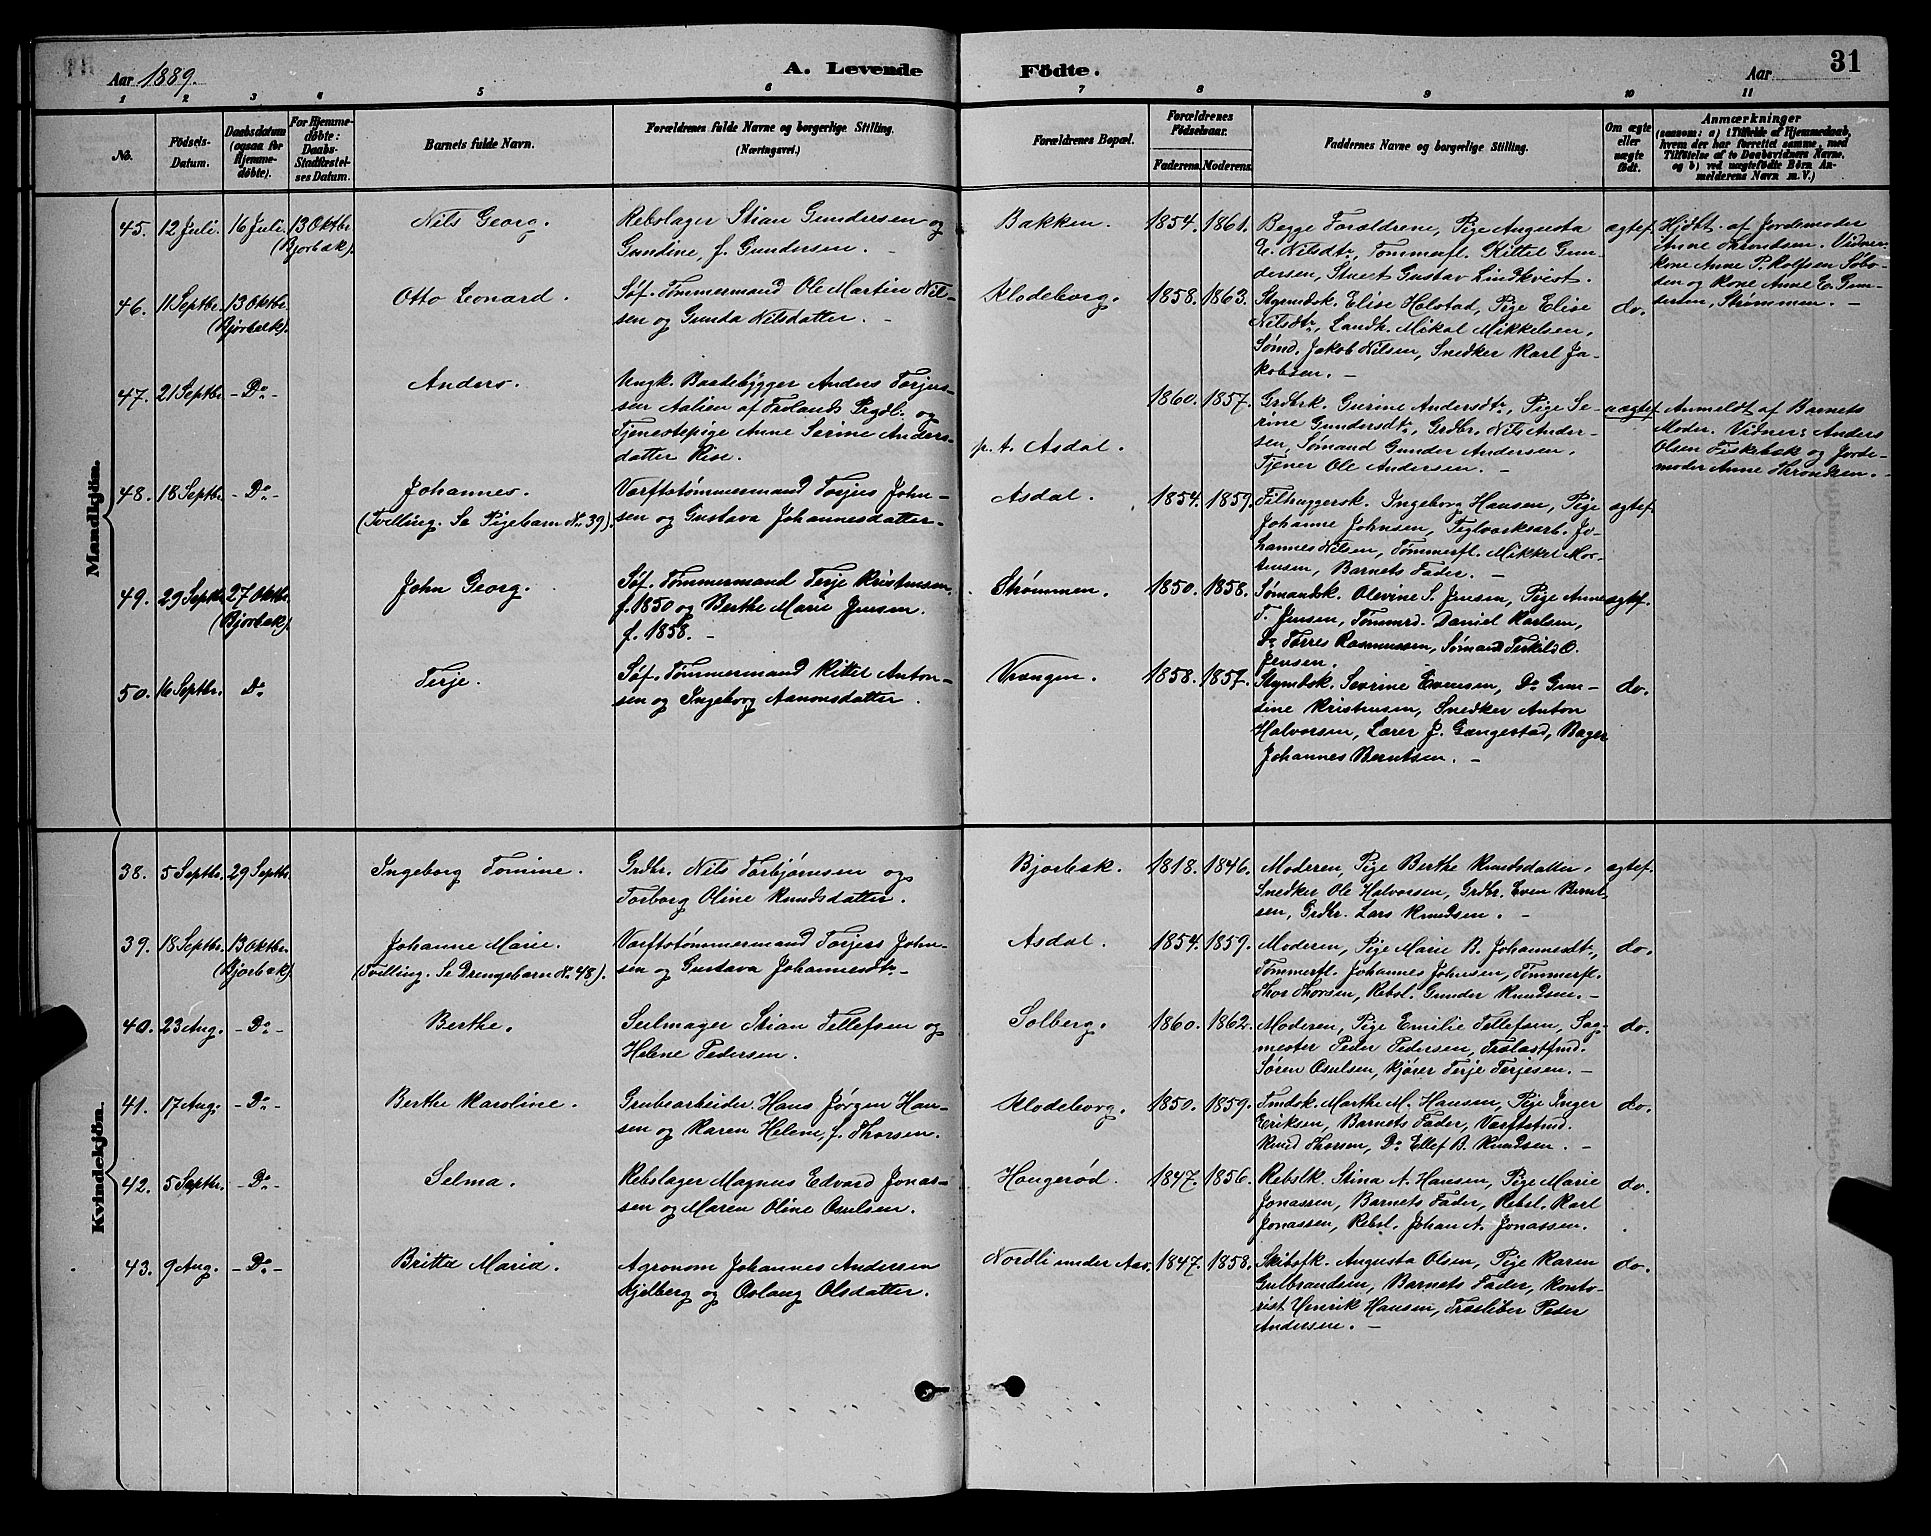 Aar 1889.
A. Levende Födte.
Aar
31
1 2 3 4 5 6 7 8 9 10 11
No.
Födsels-Datum.
Daabsdatum (ogsaa for Hjemmedöbte).
For Hjemmedöbte: Daabs-Stadfæstelses Datum.
Barnets fulde Navn.
Forældrenes fulde Navne og borgerlige Stilling.
(Næringsvei.)
Forældrenes Bopæl.
Forældrenes Födselsaar.
Faderens. Moderens.
Faddernes Navne og borgerlige Stilling.
Om ægte eller uægte födt.
Anmærkninger
(saasom: a) i Tilfælde af Hjemmedaab, hvem der har forrettet samme, med Tilföielse af to Daabsvidners Navne, og b) ved uægtefödte Börn Anmelderens Navn m. V.)
Mandkjön.
45. 12 Juli. 16 Juli. 13 Oktbr. (Bjorbæk). Nils Georg.
Rebslager Stian Gundersen og
Gundine, f. Gundersen. —
Bakken. 1854. 1861.
Begge Forældrene, Pige Augusta
E. Nilsdtr, Tømmerfl. Kittel Gun-
dersen, Stuert Gustav Lindkvist.
ægtef.
Hjdbt. af Jordemoder
Anne Thronsen. Vidner:
Kone Anne P. Rolfsen Sobo-
sen og Kone Anne E. Gun-
dersen, Strømmen. —
46. 11 Septbr. 13 Oktbr. (Bjorbæk). Otto Leonard.
Søf. Tømmermand Ole Martin Nil-
sen og Gunda Nilsdatter. —
Klodeborg. 1858. 1863.
Styrmdsk. Elise Holstad, Pige Elise
Nilsdtr, Landh. Mikal Mikkelsen,
Sømd. Jakob Nilsen, Snedker Karl Ja-
kobsen. —
do.
47. 21 Septbr. - Do - Anders.
Ungk. Baadebygger Anders Torjus-
sen Aalien af Frolands Prgdl. og
Tjenestepige Anne Serine Anders-
datter Rise.
p. t. Asdal. 1860. 1857.
Grdbrk. Gurine Andersdtr, Pige Se-
rine Gundersdtr, Grdbr. Nils Ander-
sen, Sømand Gunder Andersen,
Tjener Ole Andersen. —
uægtef.
Anmeldt af Barnets
Moder. Vidner: Anders
Olsen Fiskebæk og Jorde-
moder Anne Thronsen. —
48. 18 Septbr. - Do - Johannes.
(Tvilling. Se Pigebarn No. 39).
Værftstømmermand Torjus John-
sen og Gustava Johannesdatter. —
Asdal. 1854. 1859.
Filhuggersk. Ingeborg Hansen, Pige
Johanne Johnsen, Teglværksarb. Jo-
hannes Nilsen, Tømmerfl. Mikkel Mor-
tensen, Barnets Fader. —
ægtef.
49. 29 Septbr. 27 Oktbr. (Bjorbæk). John Georg.
Søf. Tømmermand Terje Kristensen,
f. 1850 og Berthe Marie Jensen.
f. 1858. —
Strømmen. 1850. 1858.
Sømandsk. Olevine S. Jensen, Pige Anne
T. Jensen, Tømmerd. Daniel Karlsen,
Do Tørres Rasmussen, Sømand Terkil O.
Jensen.
ægtef.
50. 16 Septbr. Do Terje.
Søf. Tømmermand Kittel Anton-
sen og Ingeborg Aanonsdatter.
Vrængen. 1858. 1857.
Styrmdsk. Sevrine Evensen, Do Gun-
dine Kristensen, Snedker Anton
Halvorsen, Lærer J. Gangestad, Bager
Johannes Berntsen. —
do.
Kvindekjön.
38. 5 Septbr. 29 Septbr. Ingeborg Tomine.
Grdbr. Nils Torbjørnsen og
Torborg Oline Knudsdatter.
Bjorbæk. 1818. 1846.
Moderen, Pige Berthe Knudsdatter,
Snedker Ole Halvorsen, Grdbr. Even Bernt-
sen, Grdbr. Lars Knudsen. —
ægtef.
39. 18 Septbr. 13 Oktbr. (Bjorbæk). Johanne Marie.
(Tvilling. Se Drengebarn No. 48).
Værftstømmermand Torjus John-
sen og Gustava Johannesdtr. —
Asdal. 1854. 1859.
Moderen, Pige Marie B. Johannesdtr,
Tømmerfl. Johannes Johnsen, Tømmerfl.
Thor Thorsen, Rebsl. Gunder Knudsen. —
do.
40. 23 Aug. - Do - Berthe.
Seilmager Stian Tellefsen og
Helene Pedersen.
Solberg. 1860. 1862.
Moderen, Pige Emilie Tellefsen, Sag-
mester Peder Pedersen,
Søren Osulsen, Kjører Terje Terjesen. —
do.
41. 17 Aug. - Do - Berthe Karoline.
Grubearbeider Hans Jørgen Han-
sen og Karen Helene, f. Thorsen.
Klodeborg. 1850. 1859.
Tmdsk. Marthe M. Hansen, Pige Inger
Eriksen, Barnets Fader, Værftstmd.
Knud Thorsen, Do Ellef B. Knudsen. —
do.
42. 5 Septbr. - Do - Selma.
Rebslager Magnus Edvard Jonas-
sen og Maren Oline Osulsen.
Haugerød. 1847. 1856.
Rebslk. Stina A. Hansen, Pige Marie
Jonassen, Barnets Fader, Rebsl. Karl
Jonassen, Rebsl. Johan A. Jonassen.
do.
43. 9 Aug. - Do - Britta Maria.
Agronom Johannes Andersen
Kjelberg og Oslaug Olsdatter.
Nordli under Aas. 1847. 1858.
Skibsfk. Augusta Olsen, Pige Karen
Gulbrandsen, Barnets Fader, Konto-
rist Henrik Hansen, Træsliber Peder
Andersen. —
do.